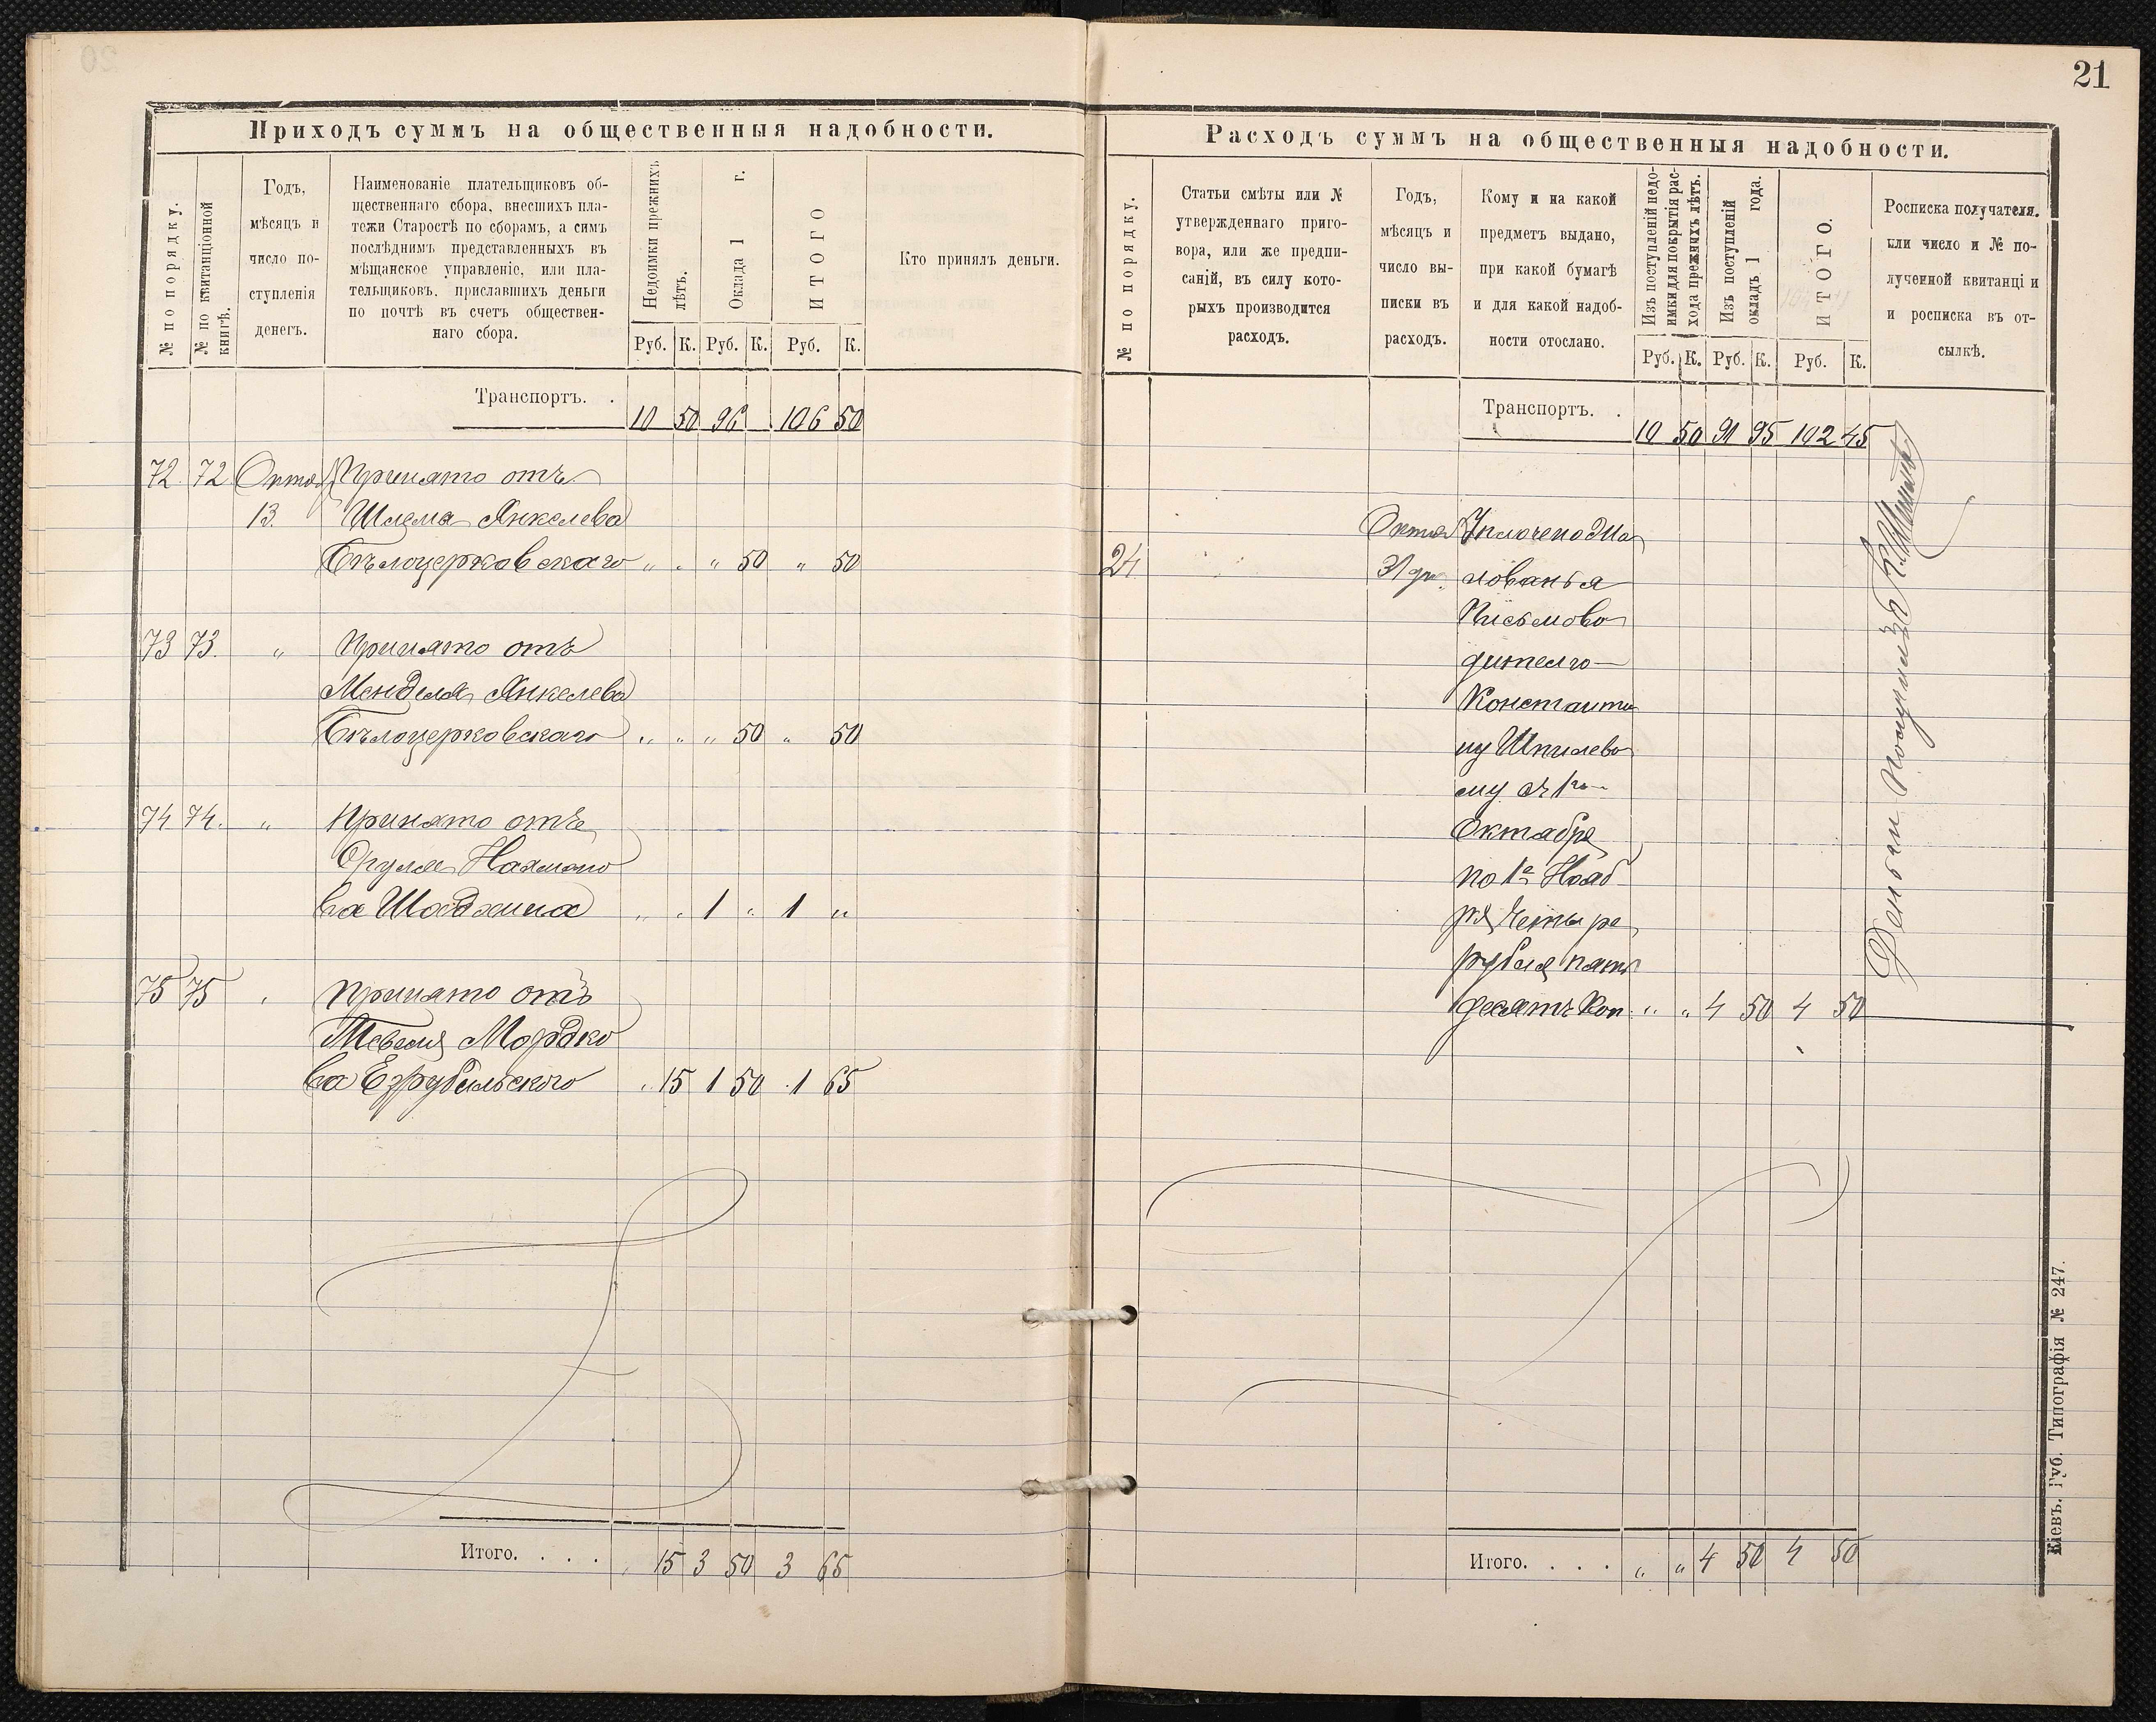 21
Приходъ суммъ на общественныя надобности.
№ по порядку.
№ по квитанціонной книгѣ.
Годъ,
мѣсяцъ и
число по-
ступленія
денегъ.
Наименованіе плательщиковъ об-
щественнаго сбора, внесшихъ пла-
тежи Старостѣ по сборамъ, а симъ
послѣднимъ представленныхъ въ
мѣщанское управленіе, или пла-
тельщиковъ, приславшихъ деньги
по почтѣ въ счетъ обществен-
наго сбора.
Недоимки прежнихъ
лѣтъ.
Оклада 1 г.
ИТОГО
Кто принялъ деньги.
Руб. К. Руб. К. Руб. К.
Транспортъ. . 10 50 96 106 50
72. 72 Октяб Принято отъ
13. Шлема Янкелева
Бѣлоцерковскаго „ „ „ 50 „ 50
73 73. „ Принято отъ
Менделя Янкелева
Бѣлоцерковскаго „ „ „ 50 „ 50
74 74. „ Принято отъ
Сруля Нахмано
ва „ „ 1 „ 1 „
75 75 „ Принято отъ
Тевеля Мордко
ва „ 15 1 50 1 65
Итого. . . . 15 3 50 3 65
Расходъ суммъ на общественныя надобности.
№ по порядку.
Статьи смѣты или №
утвержденнаго приго-
вора, или же предпи-
саній, въ силу кото-
рыхъ производится
расходъ.
Годъ,
мѣсяцъ и
число вы-
писки въ
расходъ.
Кому и на какой
предметъ выдано,
при какой бумагѣ
и для какой надоб-
ности отослано.
Изъ поступленій недо-
имки для покрытія рас-
хода прежнихъ лѣтъ.
Изъ поступленій
окладъ 1 года.
ИТОГО.
Росписка получателя.
или число и № по-
лученной квитанці и
и росписка въ от-
сылкѣ.
Руб. К. Руб. К. Руб. К.
Транспортъ. . 10 50 91 95 102 45
Октяб Уплочено Жа
24 31 дня лованья
Письмово
дителю
Константи
ну Шпилево
му съ 1го
Октября
по 1е Нояб
ря четыре
рубля пять
десятъ Коп. „ „ 4 50 4 50
Деньги получилъ
Итого. . . . „ „ 4 50 4 50
Кіевъ. Губ. Типографія № 247.